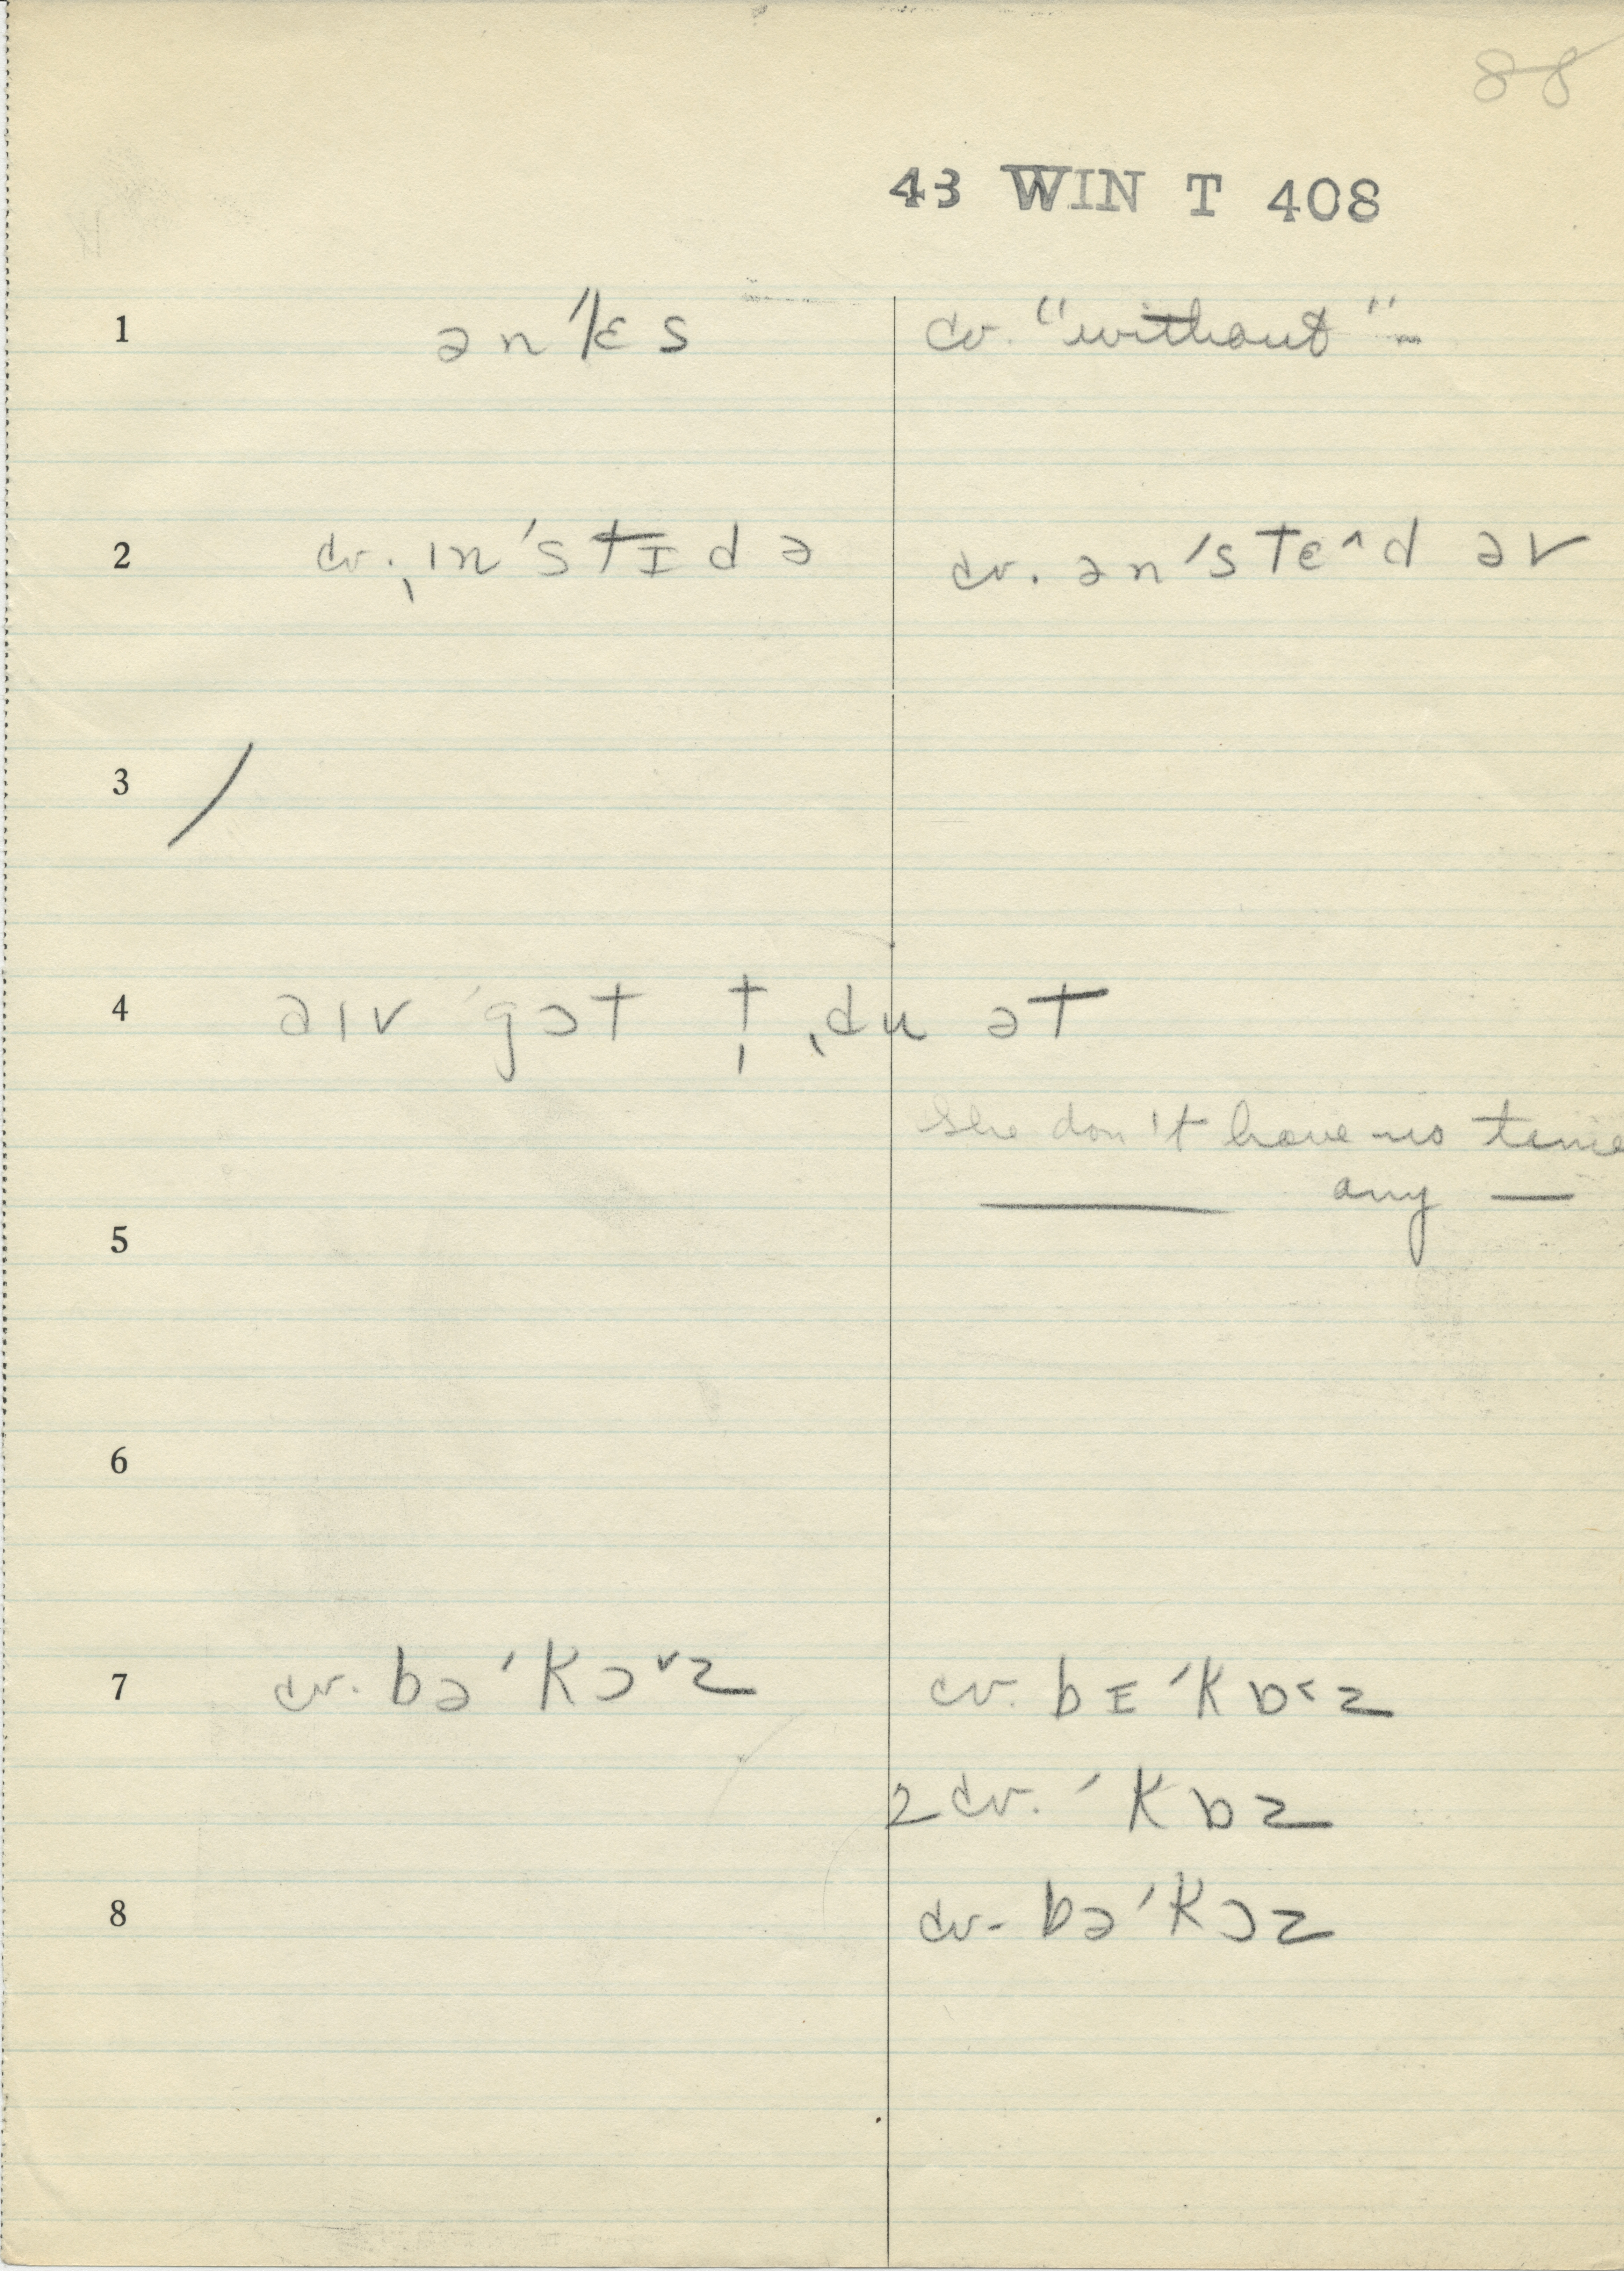 88
43 WIN T 408
1 ən ˈlɛs cv. "without" –
2 cv. ˌɪn ˈstɪd ə cv. ən ˈstɛ^d əv
3 /
4 əɪv ˈgɔt t̩ ˌdu ət
she don't have no time
— any —
5
6
7 cv. bə ˈkɔ˅z cv. bɪ ˈkɒ˂z
2 cv. ˈkɒz
8 cv. bə ˈkɔz